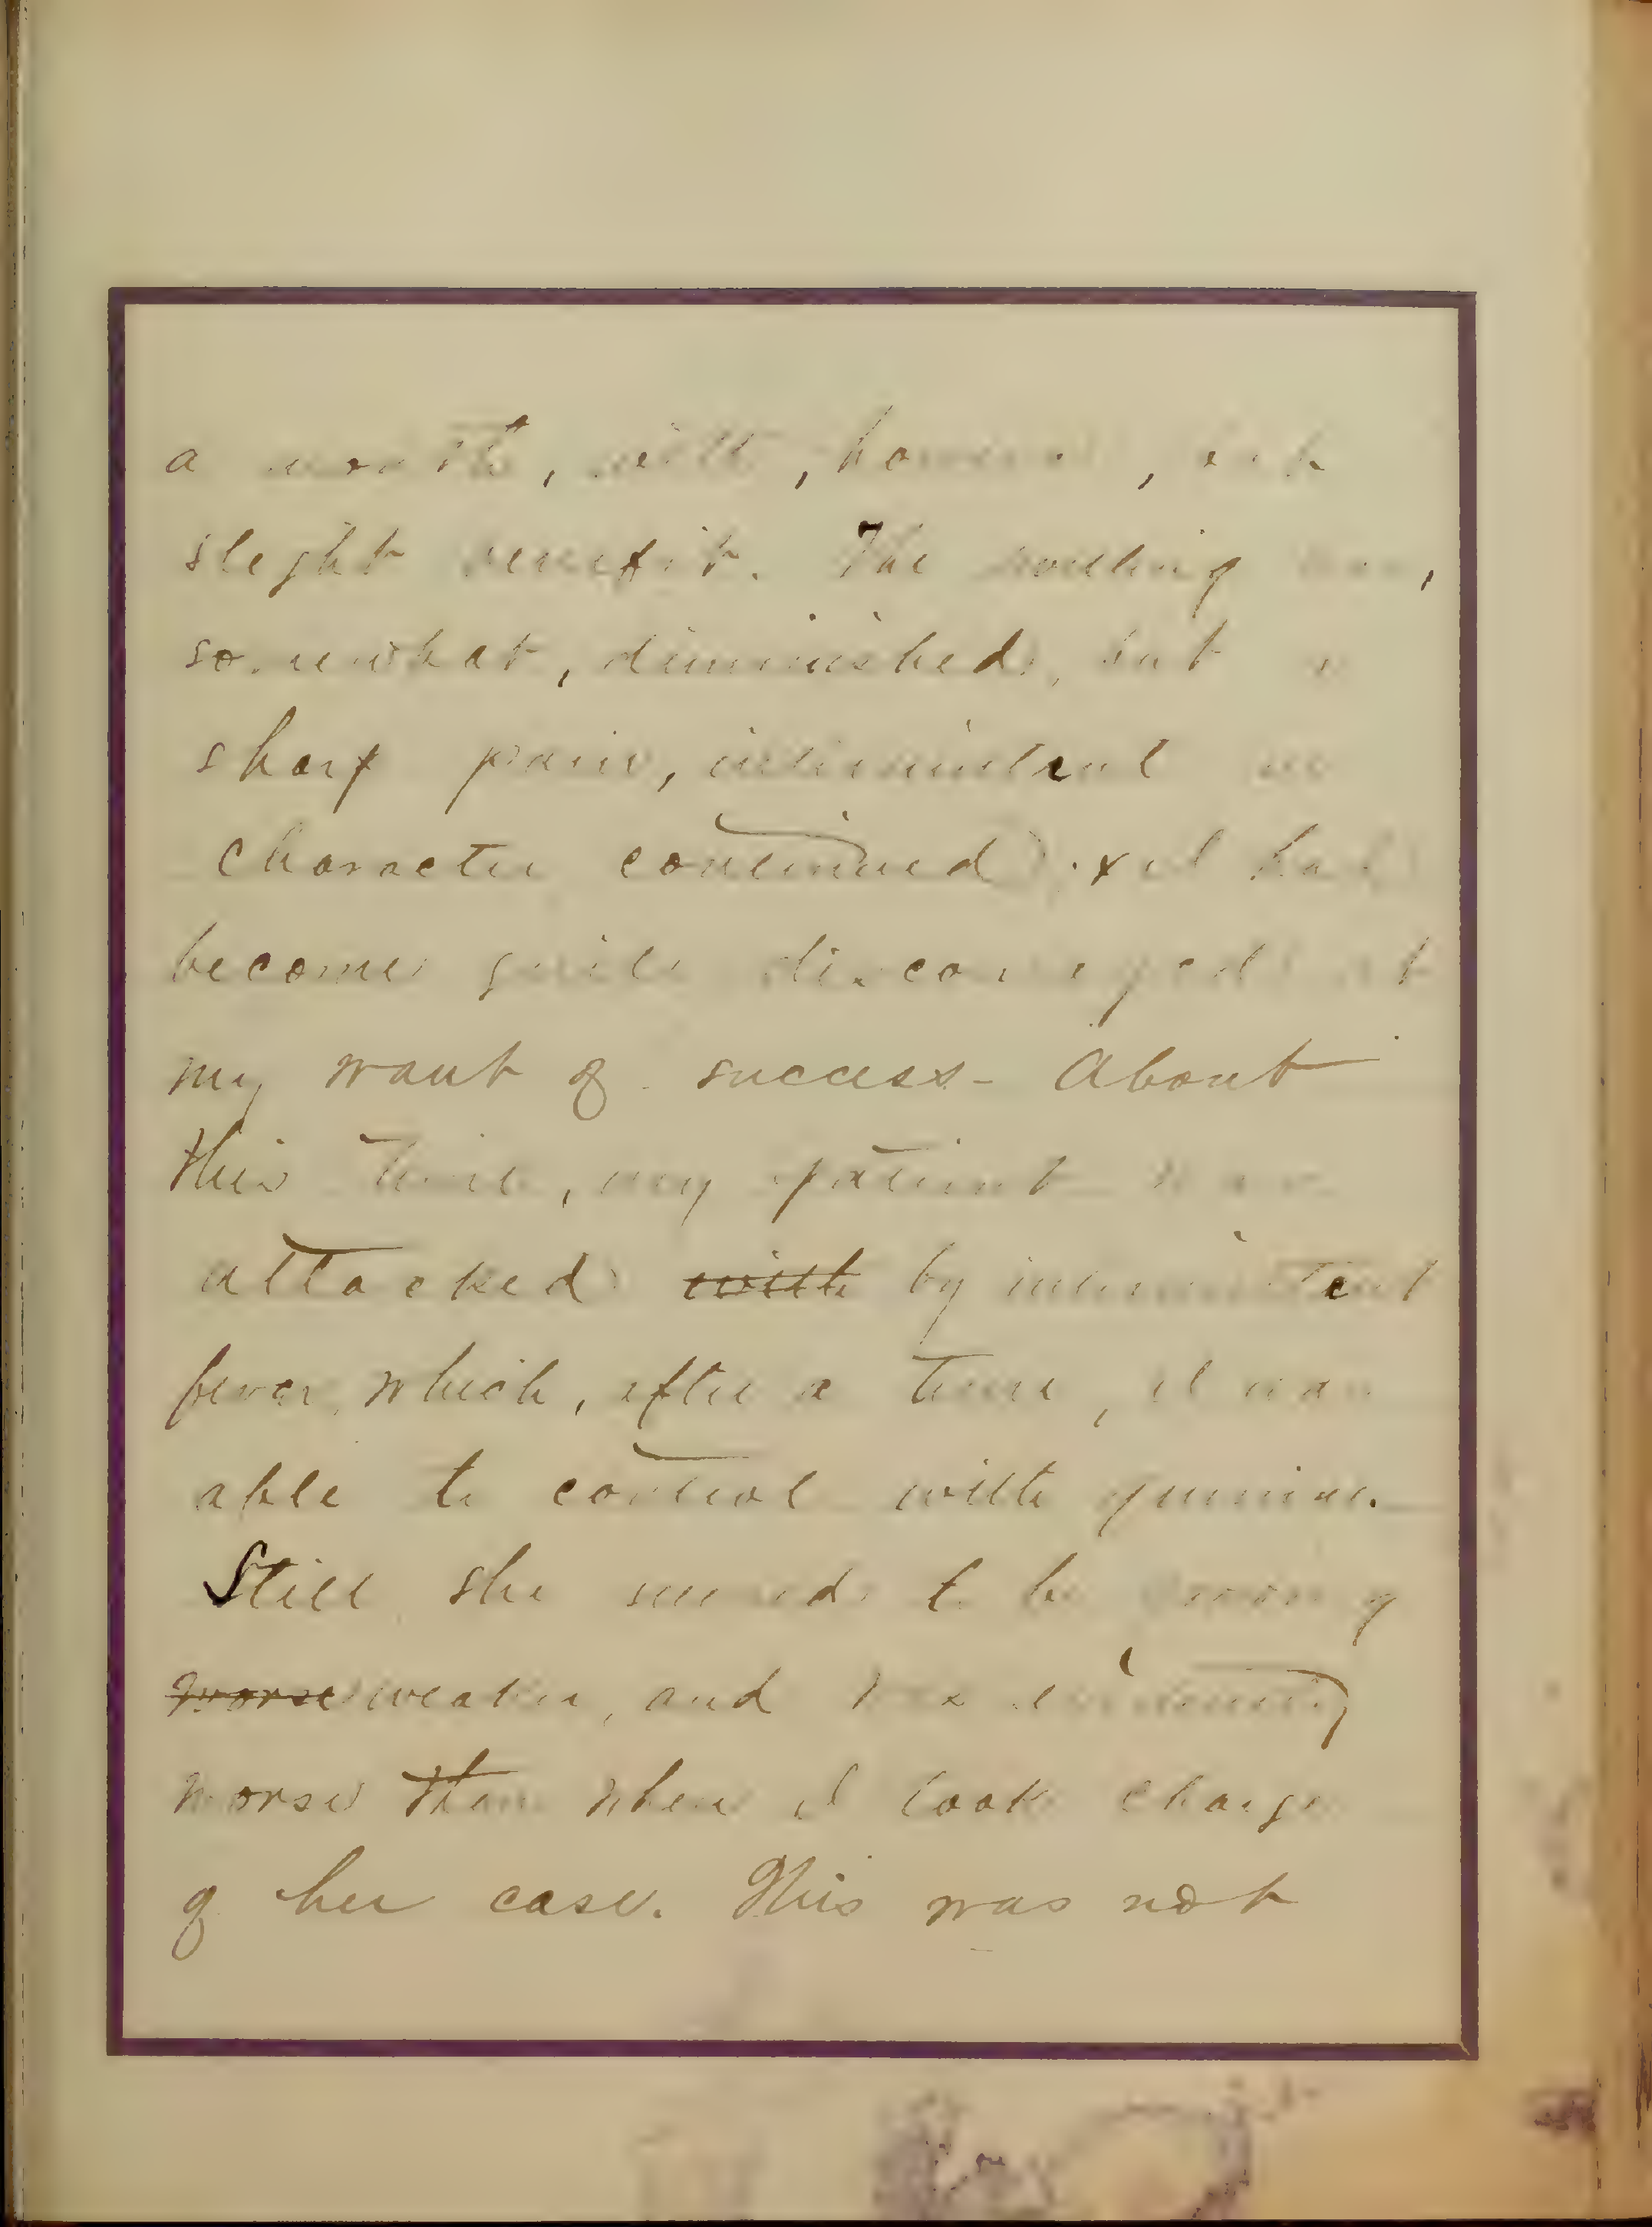 a month, with, however, but
slight benefit. The swelling was,
somewhat, diminished, but a
sharp pain, intermittent in
character continued, & I had
become quite discouraged at
my want of success - About
this time, my patient was
attacked with by intermittent
fever, which, after a time, I was
able to control with quinine.
Still she seemed to be growing
worse weaker, and was evidently
worse than when I took charge
of her case. This was not